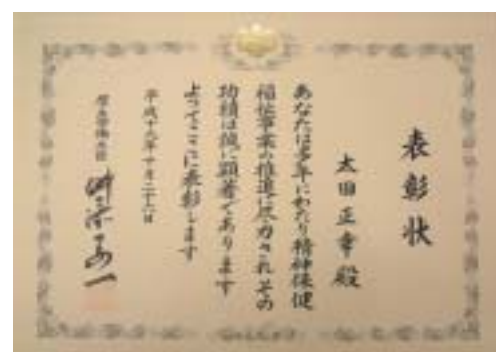 表彰状
太田正幸殿
あなたは多年にわたり精神保健
福祉事業の推進に尽力されその
功績は誠に顕著であります
よってここに表彰します
平成十六年十月二十六日
厚生労働大臣